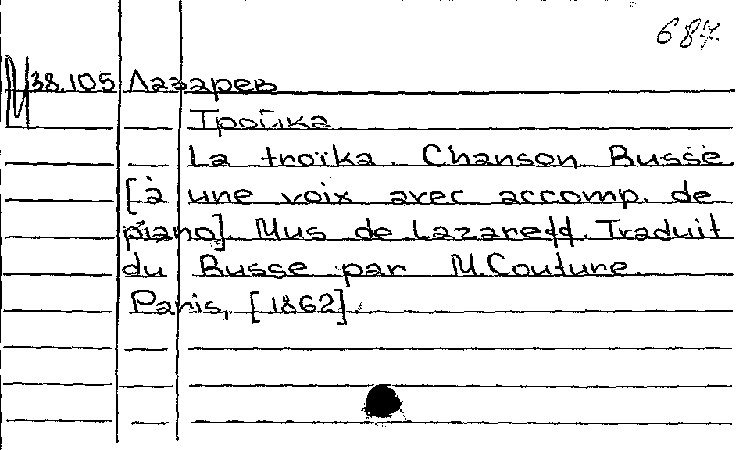 687.
38.105 Лазарев
Тройка
La troïka. Chanson Russe
[à une voix avec accomp. de
piano]. Mus de Lazareff. Traduit
du Russe par M. Couture.
Paris, [1862].